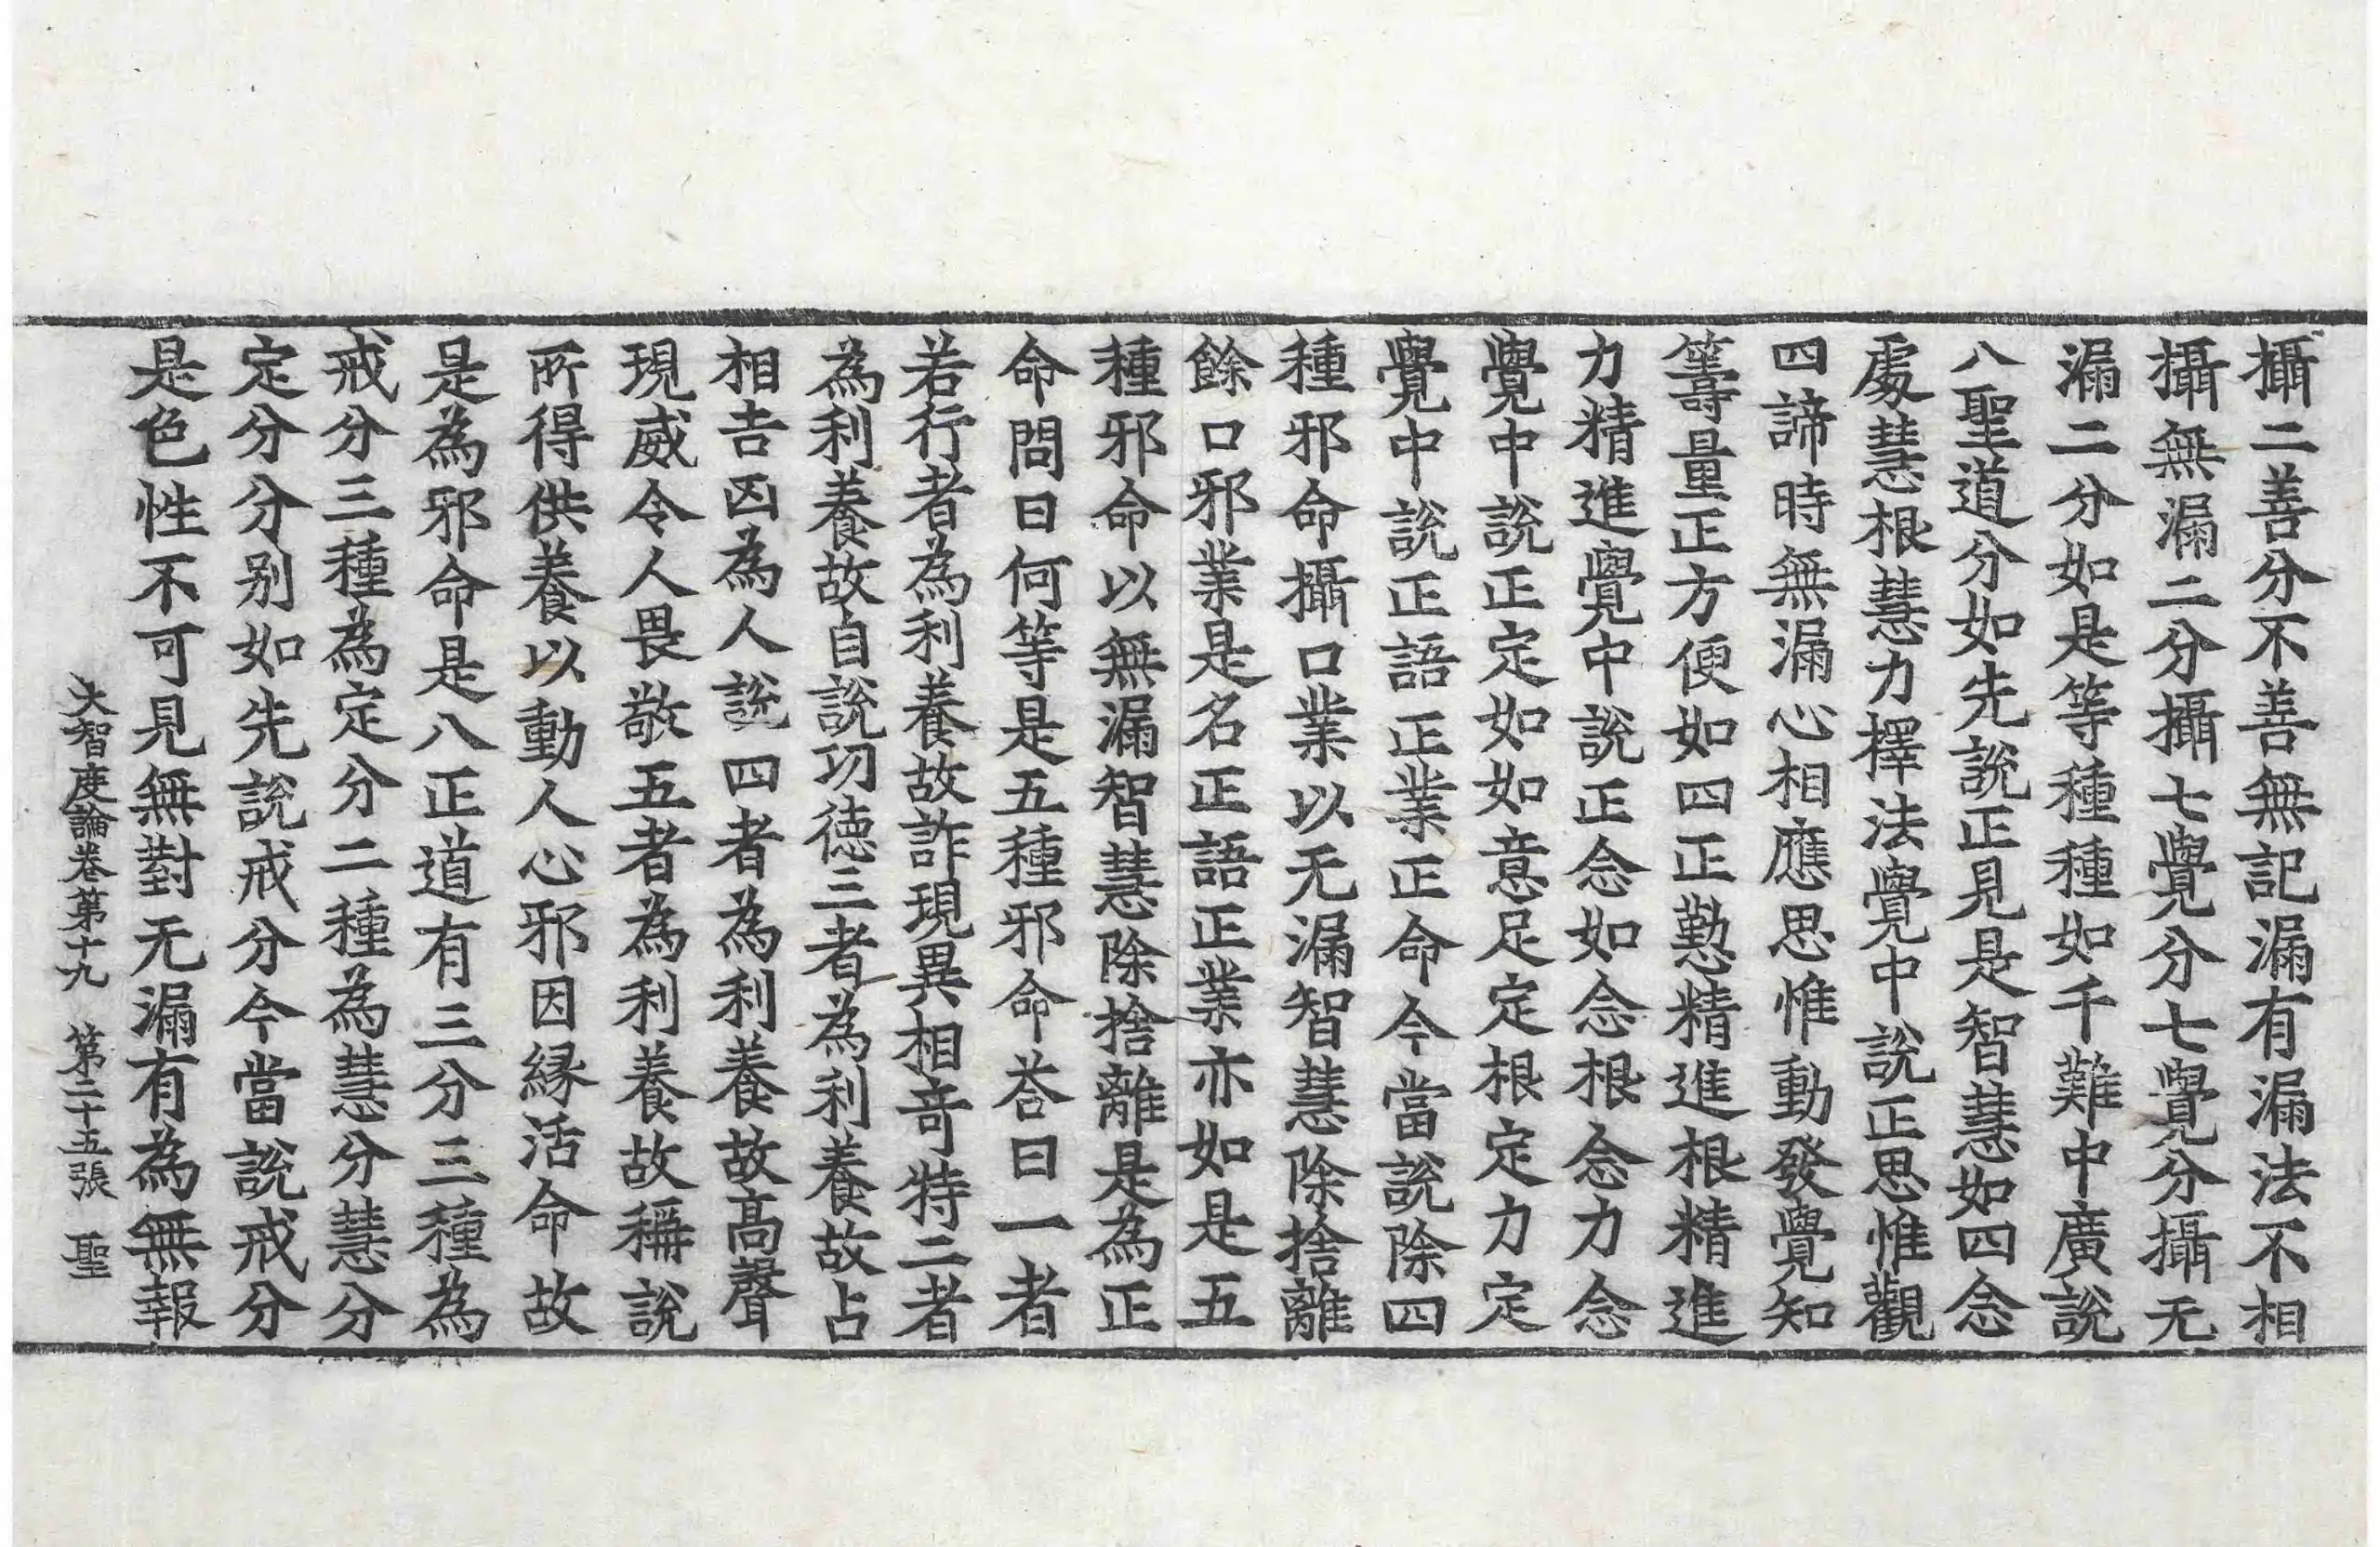 攝二善分不善無記漏有漏法不相
攝無漏二分攝七覺分七覺分攝无
漏二分如是等種種如千難中廣說
八聖道分如先說正見是智慧如四念
處慧根慧力擇法覺中說正思惟觀
四諦時無漏心相應思惟動發覺知
籌量正方便如四正懃精進根精進
力精進覺中說正念如念根念力念
覺中說正定如如意足定根定力定
覺中說正語正業正命今當說除四
種邪命攝口業以无漏智慧除捨離
餘口邪業是名正語正業亦如是五
種邪命以無漏智慧除捨離是為正
命問曰何等是五種邪命荅曰一者
若行者為利養故詐現異相竒特二者
為利養故自說功德三者為利養故占
相吉凶為人說四者為利養故高聲
現威令人畏敬五者為利養故稱說
所得供養以動人心邪因緣活命故
是為邪命是八正道有三分三種為
戒分三種為定分二種為慧分慧分
定分分別如先說戒分今當說戒分
是色性不可見無對无漏有為無報
大智度論卷第十九　第二十五張　聖